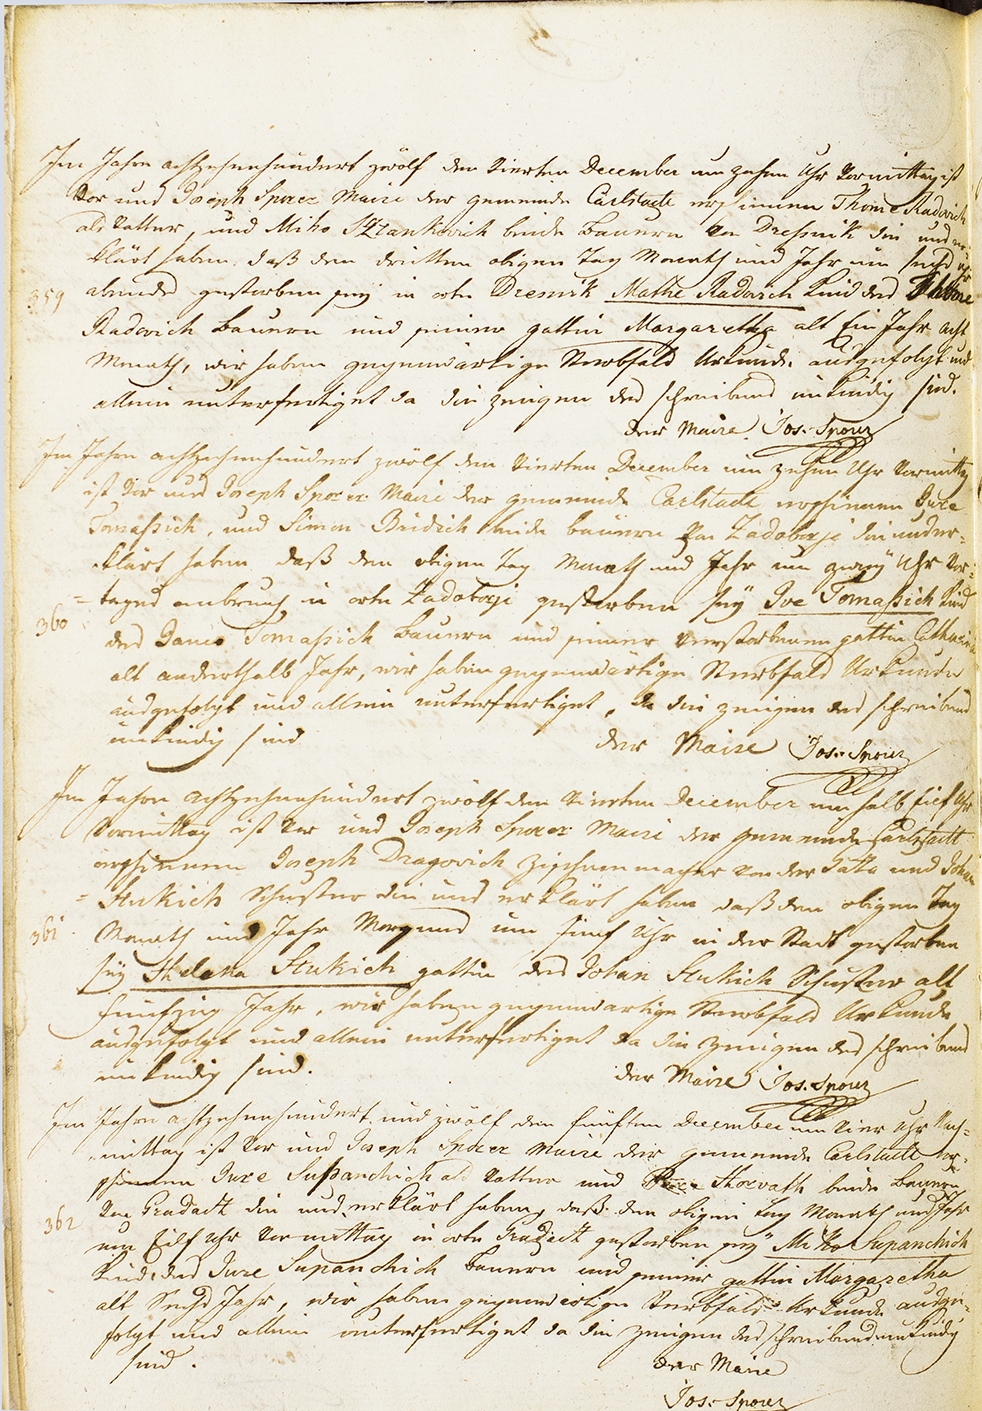 Im Jahre achtzehnhundert zwölf den vierten December um zehen Uhr Vormittag ist
Vor uns Joseph Sporer Maire der gemeinde Carlstadt erschienen Thome Radovich
als Vatter, und Miko Sztankovich beide Bauern von Dresnik die uns er-
klärt haben, daß den dritten obigen Tag Monath und Jahr um sechs Uhr
359 abends gestorben sey in orte Dresnik Mathe Radovich Kind des Thome
Radovich Bauern und seiner gattin Margaretha alt Ein Jahr acht
Monath, wir haben gegenwärtige Sterbfald Urkunde ausgefolgt und
allein unterfertiget da die zeugen des schreibens unkündig sind.
der Maire Jos: Sporer
Im Jahre achtzehnhundert zwölf den vierten December um zehen Uhr Vormittag
ist Vor uns Joseph Sporer Maire der gemeinde Carlstadt erschienen Jure
Tomassich, und Simon Bridich beide bauern von Zadobarje die uns er-
klärt haben daß den obigen Tag Monath und Jahr um zwey Uhr Vor-
= tages anbruch in orte Zadobarje gestorben sey Ive Tomassich Kind
360 des Janco Tomassich Bauern und seiner verstorbenen gattin Catharina
alt anderthalb Jahr, wir haben gegenwärtige Sterbfald Urkunde
ausgefolgt und allein unterfertiget, da die zeugen des schreibens
unkündig sind
der Maire Jos: Sporer
Im Jahre achtzehnhundert zwölf den vierten December um halb Eilf Uhr
Vormittag ist Vor uns Joseph Sporer Maire der gemeinde Carlstadt
erschienen Joseph Dragovich Zischmenmacher von der Gaza und Johan
= Stukich Schuster die uns erklärt haben daß den obigen Tag
361 Monath und Jahr Morgens um fünf Uhr in der Stadt gestorben
sey Helena Stukich gattin des Johan Stukich Schuster alt
fünfzig Jahr, wir haben gegenwärtige Sterbfald Urkunde
ausgefolgt und allein unterfertiget da die zeugen des schreibens
unkündig sind.
der Maire Jos: Sporer
Im Jahre achtzehnhundert und zwölf den fünften December um Vier Uhr Nach-
mittag ist Vor uns Joseph Sporer Maire der gemeinde Carlstadt er-
schienen Jure Supanchich als Vatter und Horvath beide Bauern
von Gradatz die uns erklärt haben, daß den obigen Tag Monath und Jahr
362 um Eilf Uhr Vormittag in orte gestorben sey Mirko Supanchich
Kind des Jure Supanchich Bauern und seiner gattin Margaretha
alt Sechs Jahr, wir haben gegenwärtige Sterbfald Urkunde ausge-
folgt und allein unterfertiget da die zeugen des schreibens unkündig
sind.
der Maire
Jos: Sporer